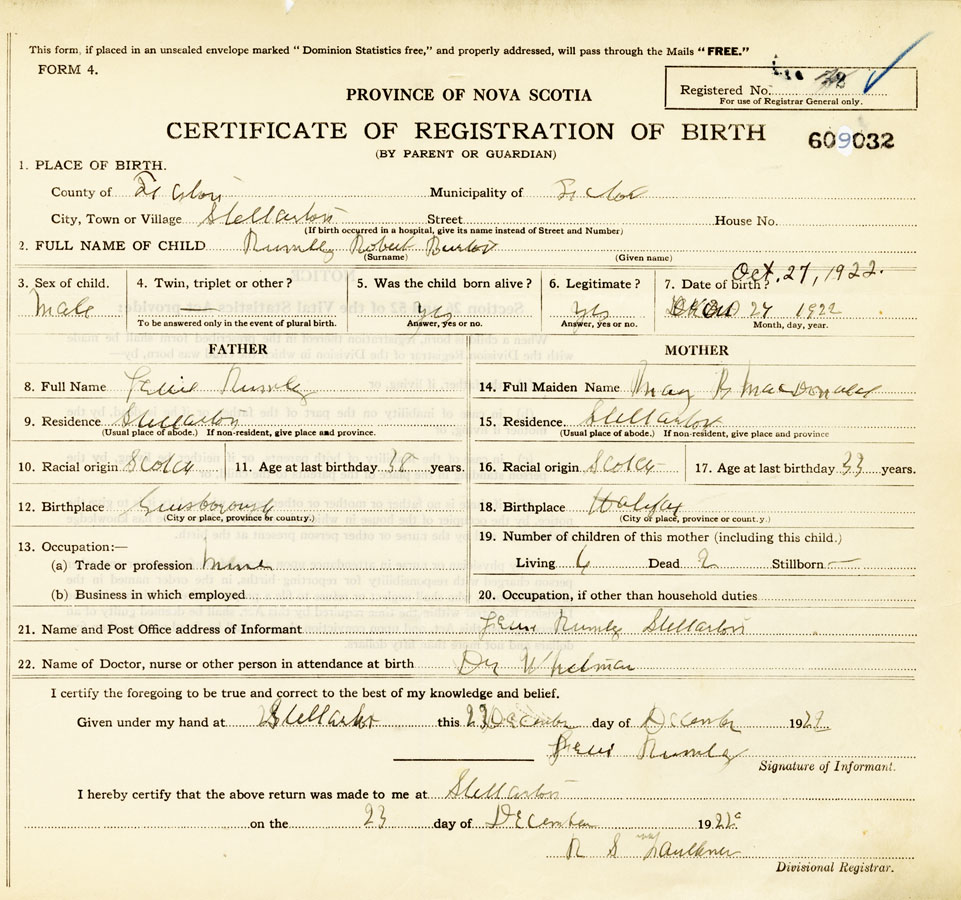 This form, if placed in an unsealed envelope marked " Dominion Statistics free," and properly addressed, will pass through the Mails "FREE."
FORM 4.
Registered No.
For use of Registrar General only.
PROVINCE OF NOVA SCOTIA
CERTIFICATE OF REGISTRATION OF BIRTH
609032
(BY PARENT OR GUARDIAN)
1. PLACE OF BIRTH.
County of Municipality of
City, Town or Village Stellarton Street House No.
(If birth occurred in a hospital, give its name instead of Street and Number)
2. FULL NAME OF CHILD Robert
(Surname) (Given name)
Oct. 27, 1922.
3. Sex of child. 4. Twin, triplet or other? 5. Was the child born alive? 6. Legitimate? 7. Date of birth?
Male — yes yes 27 1922
To be answered only in the event of plural birth. Answer, yes or no. Answer, yes or no. Month, day, year.
FATHER MOTHER
8. Full Name 14. Full Maiden Name B MacDonald
9. Residence Stellarton 15. Residence. Stellarton
(Usual place of abode.) If non-resident, give place and province. (Usual place of abode.) If non-resident, give place and province
10. Racial origin Scotch 11. Age at last birthday years. 16. Racial origin Scotch 17. Age at last birthday 33 years.
12. Birthplace 18. Birthplace Halifax
(City or place, province or country.) (City or place, province or count.y.)
13. Occupation:— 19. Number of children of this mother (including this child.)
(a) Trade or profession Living 6 Dead 2 Stillborn —
(b) Business in which employed 20. Occupation, if other than household duties
21. Name and Post Office address of Informant Stellarton
22. Name of Doctor, nurse or other person in attendance at birth Dr Whitman
I certify the foregoing to be true and correct to the best of my knowledge and belief.
Given under my hand at Stellarton this 23 day of December 19
Signature of Informant.
I hereby certify that the above return was made to me at Stellarton
on the 23 day of December 1922
R S Faulkner
Divisional Registrar.